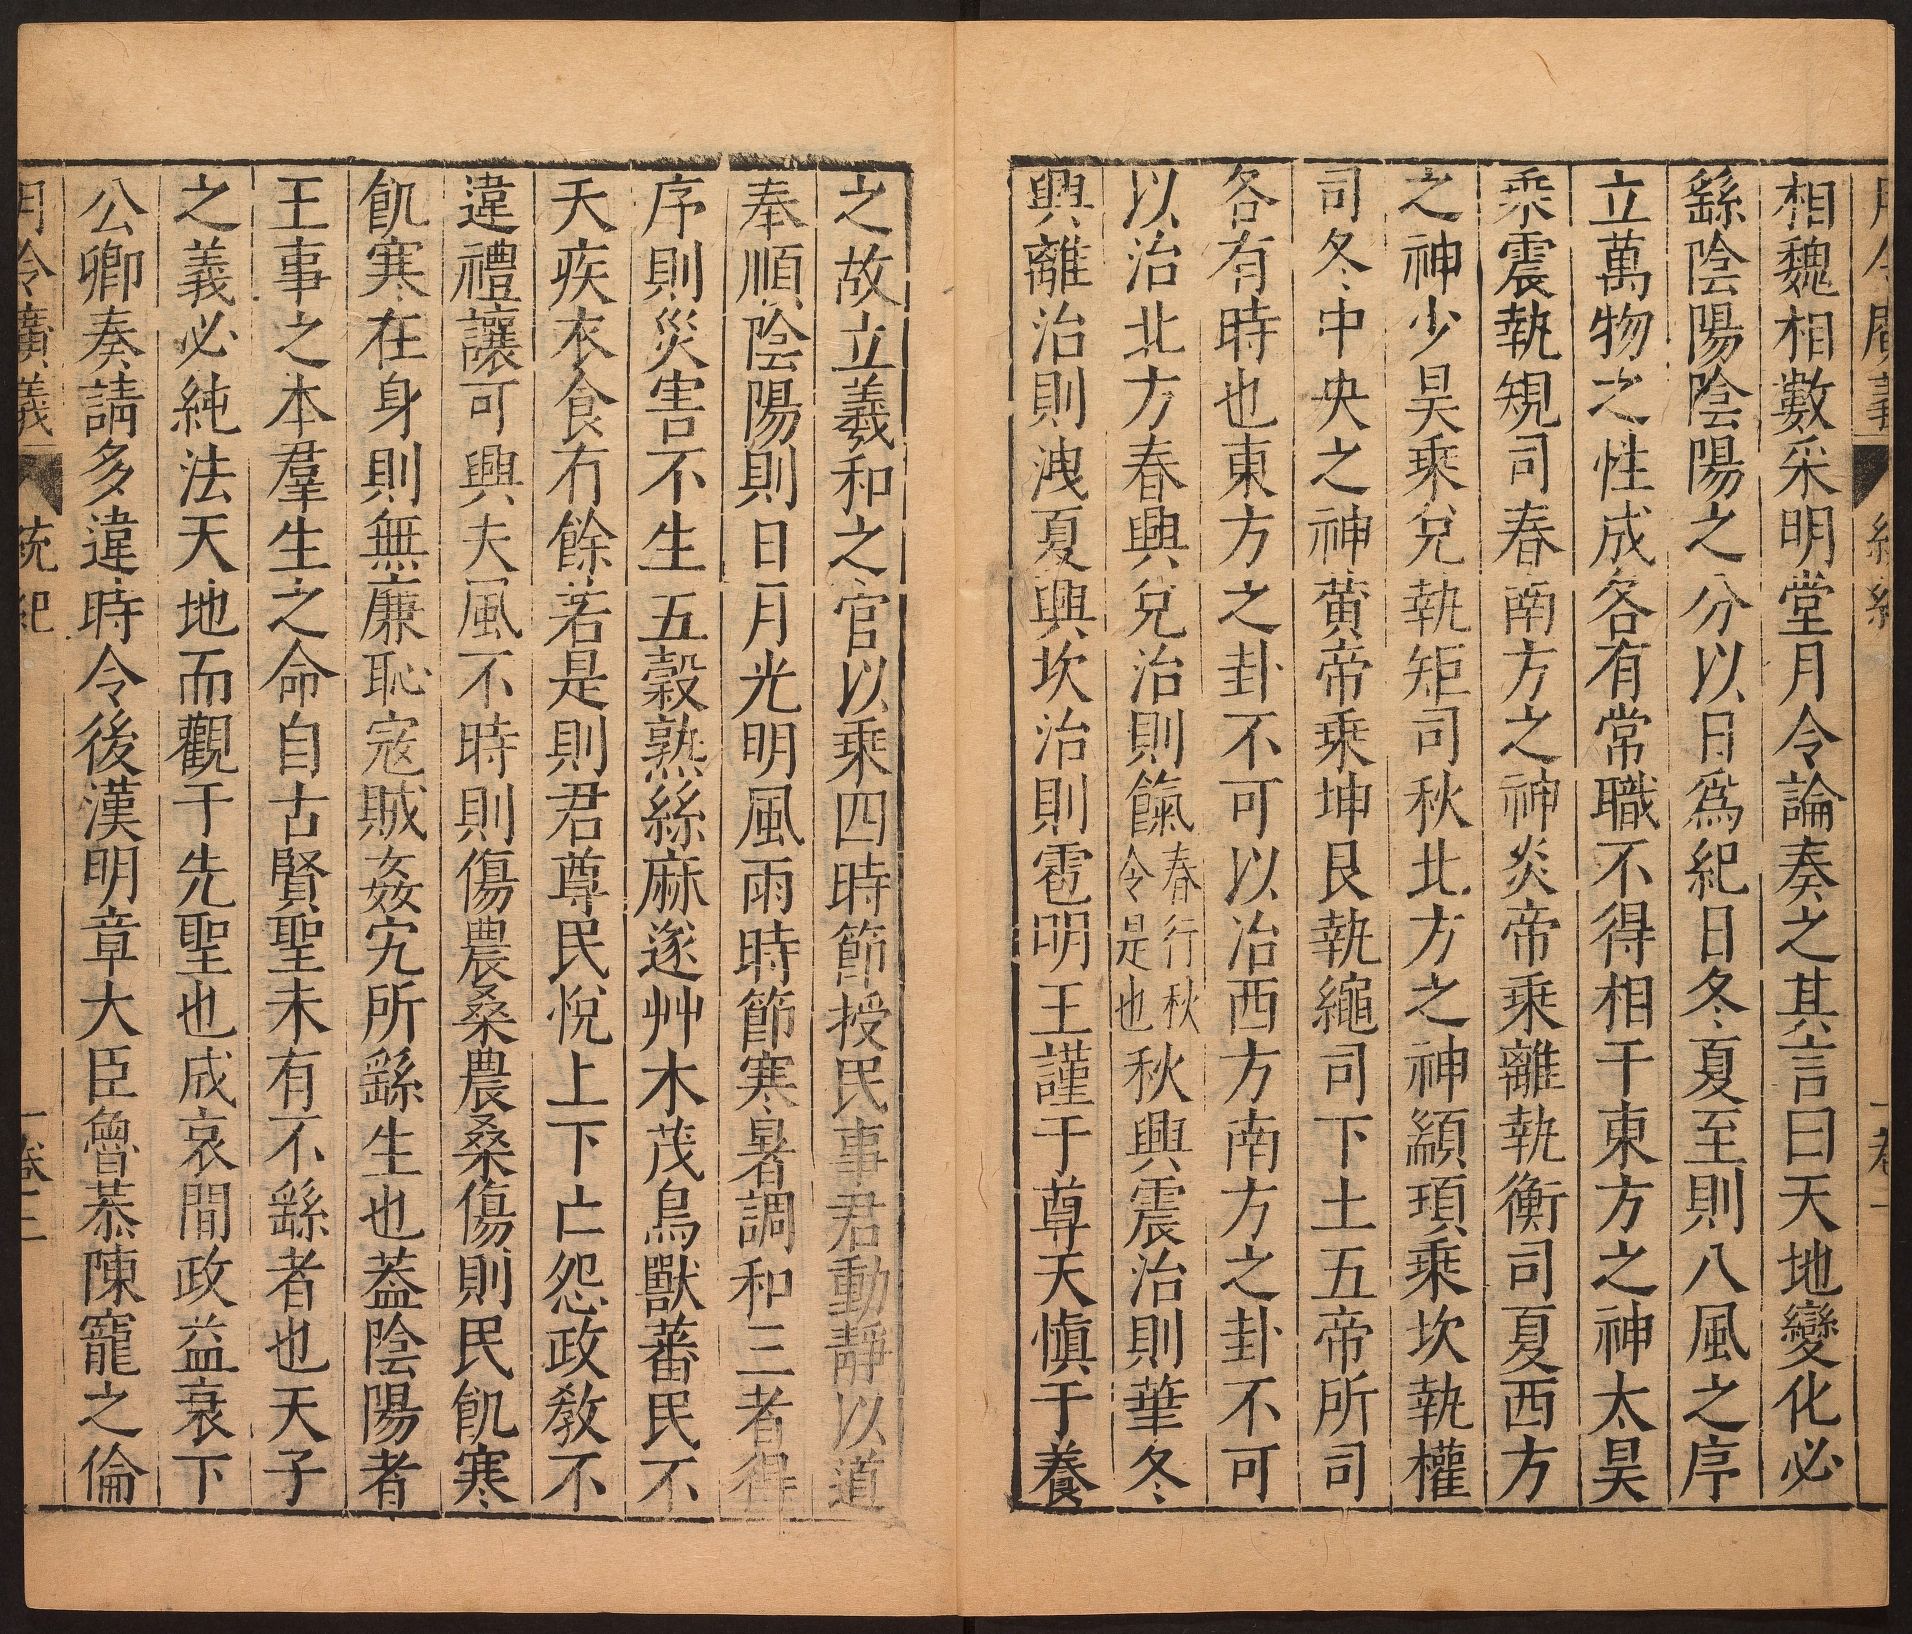 相魏相數采明堂月令論奏之其言曰天地變化必
繇陰陽陰陽之分以日爲紀日冬夏至則八風之序
立萬物之性成各有常職不得相干東方之神太昊
乘震執規司春南方之神炎帝乘離執衡司夏西方
之神少昊乘兌執矩司秋北方之神顓頊乘坎執權
司冬中央之神黃帝乘坤艮執繩司下土五帝所司
各有時也東方之卦不可以冶西方南方之卦不可
以治北方春興兌治則饑春行秋令是也秋興震治則華冬
興離治則洩夏興坎治則雹明王謹于尊天慎于養
之故立羲和之官以乘四時節授民事君動靜以道
奉順陰陽則日月光明風雨時節寒暑調和三者得
序則災害不生五穀熟絲麻遂艸木茂鳥獸蕃民不
夭疾衣食有餘若是則君尊民悅上下亡怨政敎不
違禮讓可興夫風不時則傷農桑農桑傷則民飢寒
飢寒在身則無廉恥寇賊姦宄所繇生也葢陰陽者
王事之本羣生之命自古賢聖未有不繇者也天子
之義必純法天地而觀于先聖也成哀間政益衰下
公卿奏請多違時令後漢明章大臣魯恭陳寵之倫
月令廣義 統紀 卷二